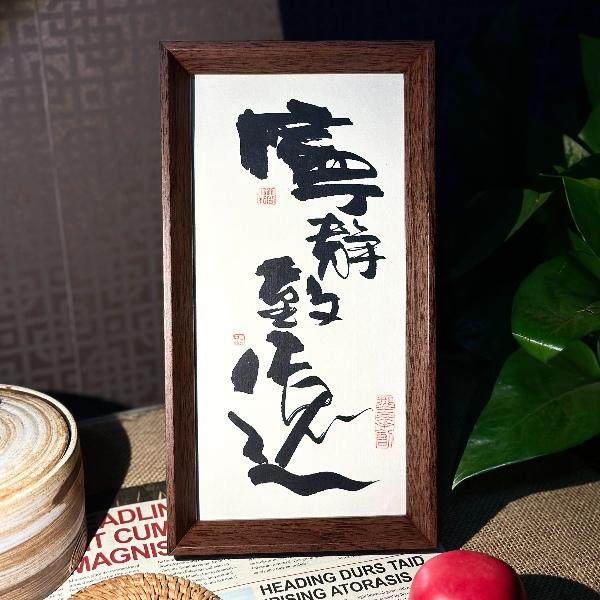 寧
靜
致
遠
ADLIN
T CUM
MAGNIS
HEADING DURS TAID
RISING ATORASIS